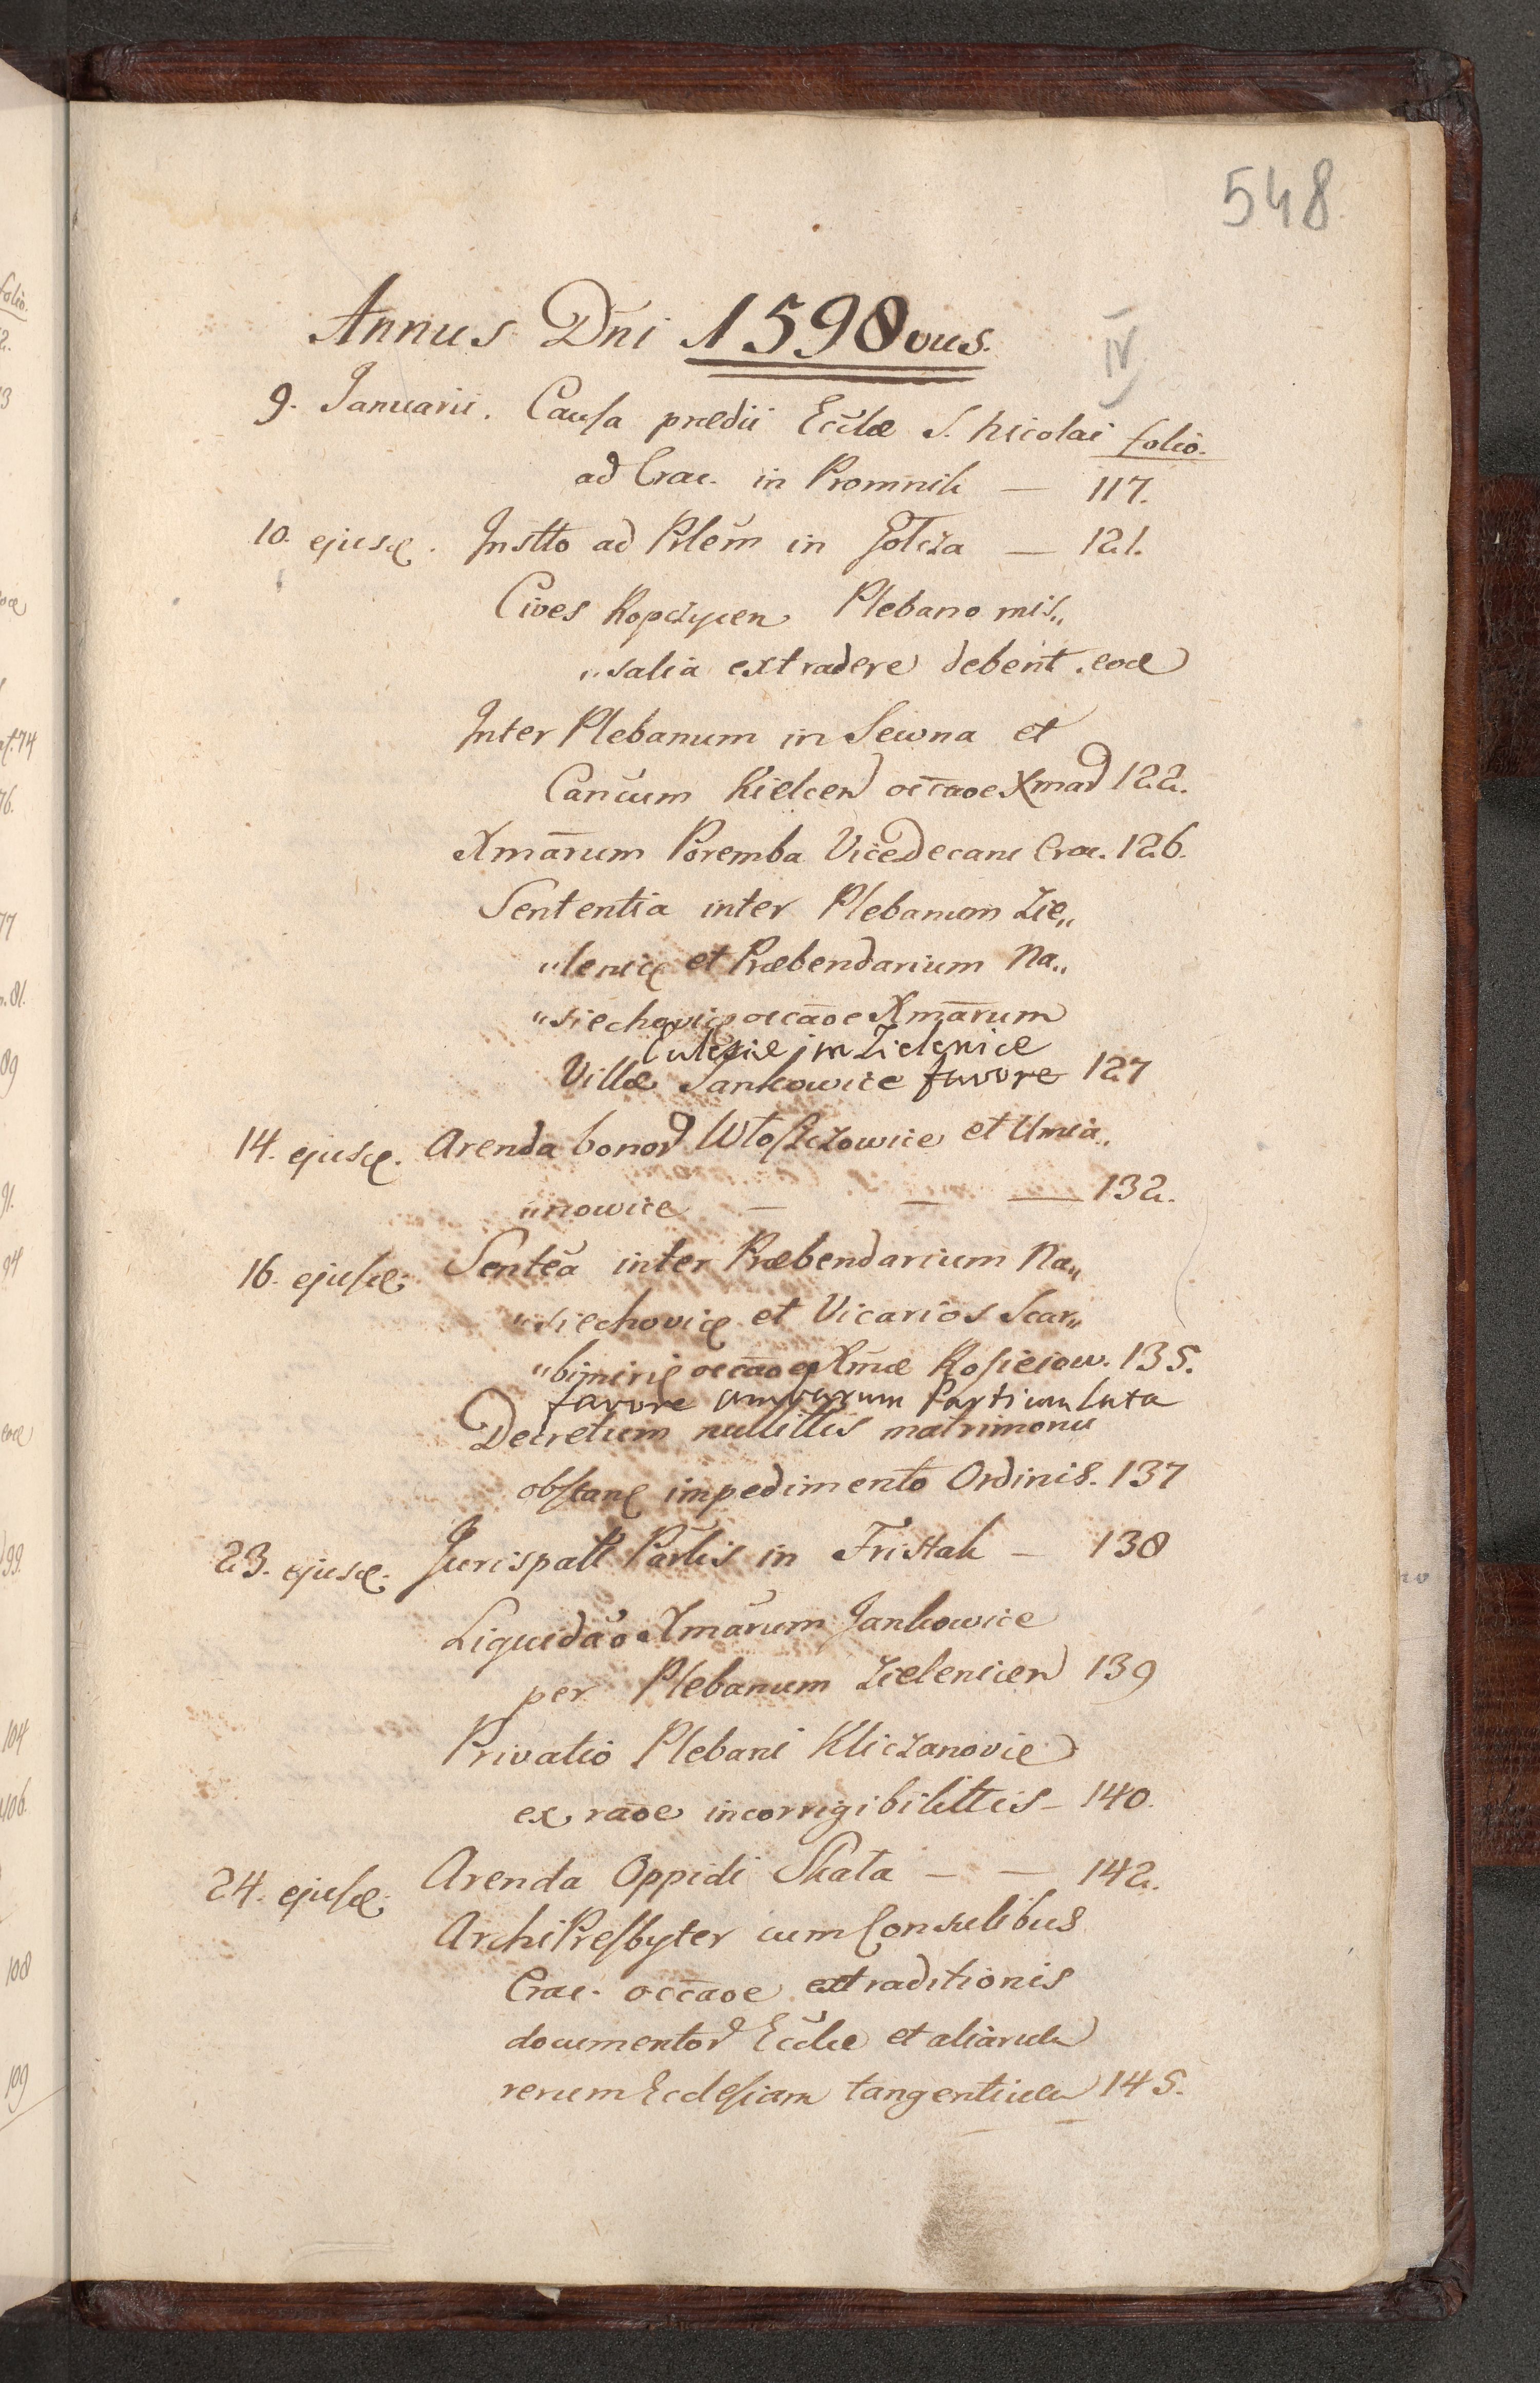 548
Annus Dni 1598vus.
IV
9. Januarii. Causa prædii Ecclæ S. Nicolai folio.
ad Crac. in Promnik — 117.
10. ejusd. Instto ad Plem in Golcza — 121.
Cives Ropczycen Plebano mis„
„salia extradere debent . eod
Inter Plebanum in Sewna et
Cancum Kielcen occaoe Xmar 122.
Xmarum Poremba ViceDecani Crac. 126.
Sententia inter Plebanum Zie„
„lenic et Præbendarium Na„
„siechovic occaoe Xmarum
Ecclesiæ in Zielenice
Villæ Jankowice favore 127
14. ejusd. Arenda bonor Wloszczowice et Umia„
„nowice — — — 132.
16. ejusd. Sentea inter Præbendarium Na„
„siechovic et Vicarios Scar„
„bimirie occaoe Xmæ Kosieiow. 135.
favore amborum Partium lata
Decretum nullittis matrimonii
obstane impedimento Ordinis. 137
23. ejusd. Jurispatt Partis in Fristak — 138
Liquidao Xmarum Jankowice
per Plebanum Zielenicen 139
Privatio Plebani Kliczanovie
ex raoe incorrigibilittis — 140.
24. ejusd. Arenda Oppidi Skala — — 142.
ArchiPresbyter cum Consulibus
Crac. occaoe extraditionis
documentor Ecclæ et aliarum
rerum Ecclesiam tangentium 145.